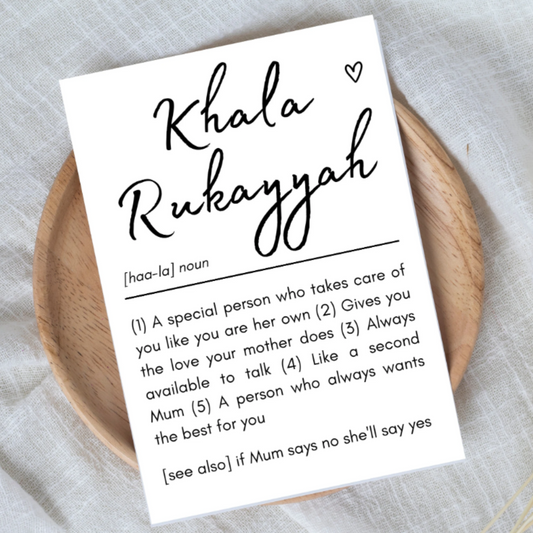 Khala
Rukayyah
[haa-la] noun
(1) A special person who takes care of
you like you are her own (2) Gives you
the love your mother does (3) Always
available to talk (4) Like a second
Mum (5) A person who always wants
the best for you
[see also] if Mum says no she'll say yes